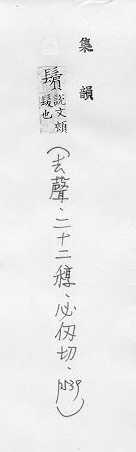 集韻
鬢
說文頰
髮也
(去聲、二十二稕、必仞切、p539)